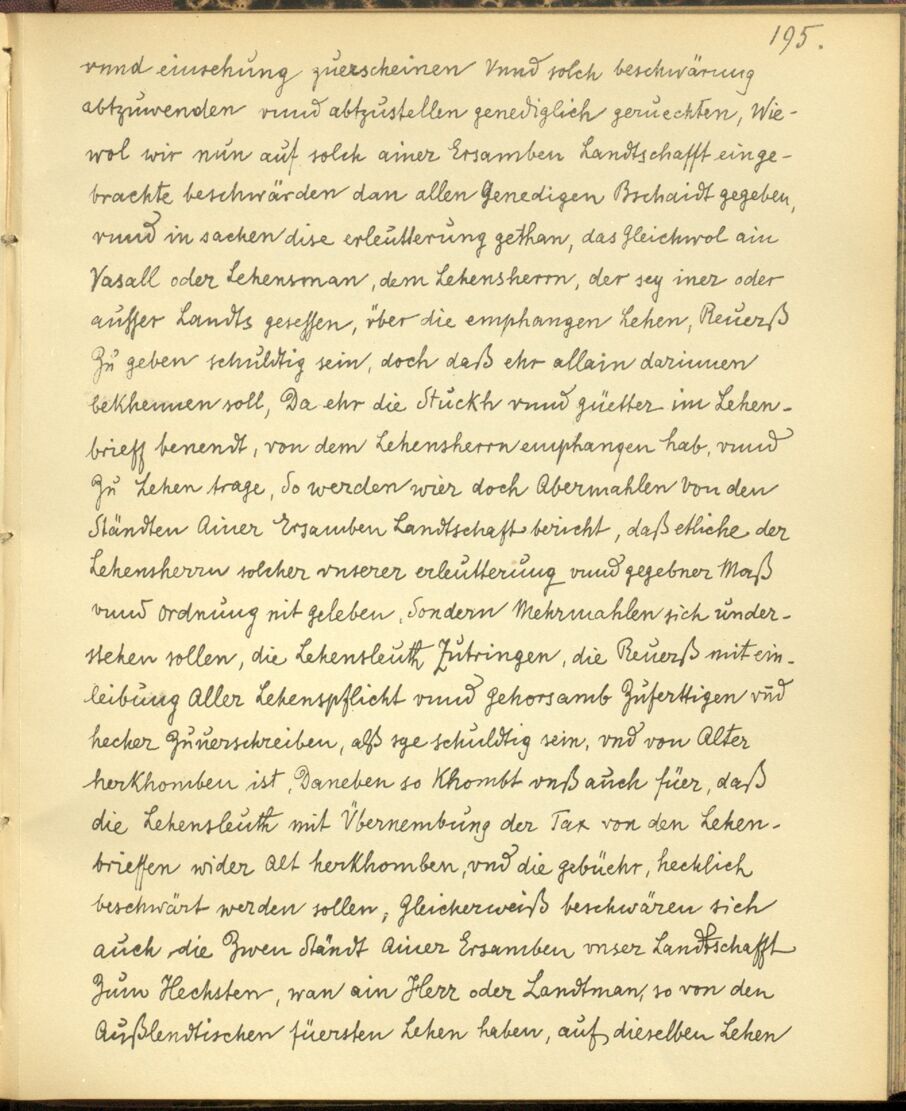 195.
vnnd einsehung zuerscheinen Vnnd solch beschwärung
abtzuwenden vnnd abtzustellen genediglich geruechten, Wie-
wol wir nun auf solch ainer Ersamben Landtschafft einge-
brachte beschwärden dan allen Genedigen Bschaidt gegeben,
vnnd in sachen dise erleutterung gethan, das Gleichwol ain
Vasall oder Lehensman, dem Lehensherrn, der sey iner oder
ausser Landts gesessen, über die emphangen Lehen, Reuerß
Zu geben schuldtig sein, doch daß ehr allain darinnen
bekhennen soll, Da ehr die Stuckh vnnd güetter im Lehen-
brieff benendt, von dem Lehensherrn emphangen hab, vnnd
Zu Lehen trage, So werden wier doch Abermahlen Von den
Ständten Ainer Ersamben Landtschaft bericht, daß etliche der
Lehensherrn solcher vnserer erleutterung vnnd gegebner Maß
vnnd ordnung nit geleben, Sondern Mehrmahlen sich under-
stehen sollen, die Lehensleuth Zutringen, die Reuerß mit ein-
leibung Aller Lehenspflicht vnnd Gehorsamb Zuferttigen vñd
hecher Zuuerschreiben, alß sye schuldtig sein, vnd von Alter
herKhomben ist, Daneben so Khombt vnß auch füer, daß
die Lehensleuth mit Übernembung der Tax von den Lehen-
brieffen wider Alt herKhomben, vnd die gebüehr, hechlich
beschwärt werden sollen, Gleicherweiß beschwären sich
auch die Zwen Ständt Ainer Ersamben vnser Landtschafft
Zum Hechsten, wan ain Herr oder Landtman, so von den
Außlendtischen füersten Lehen haben, auf dieselben Lehen